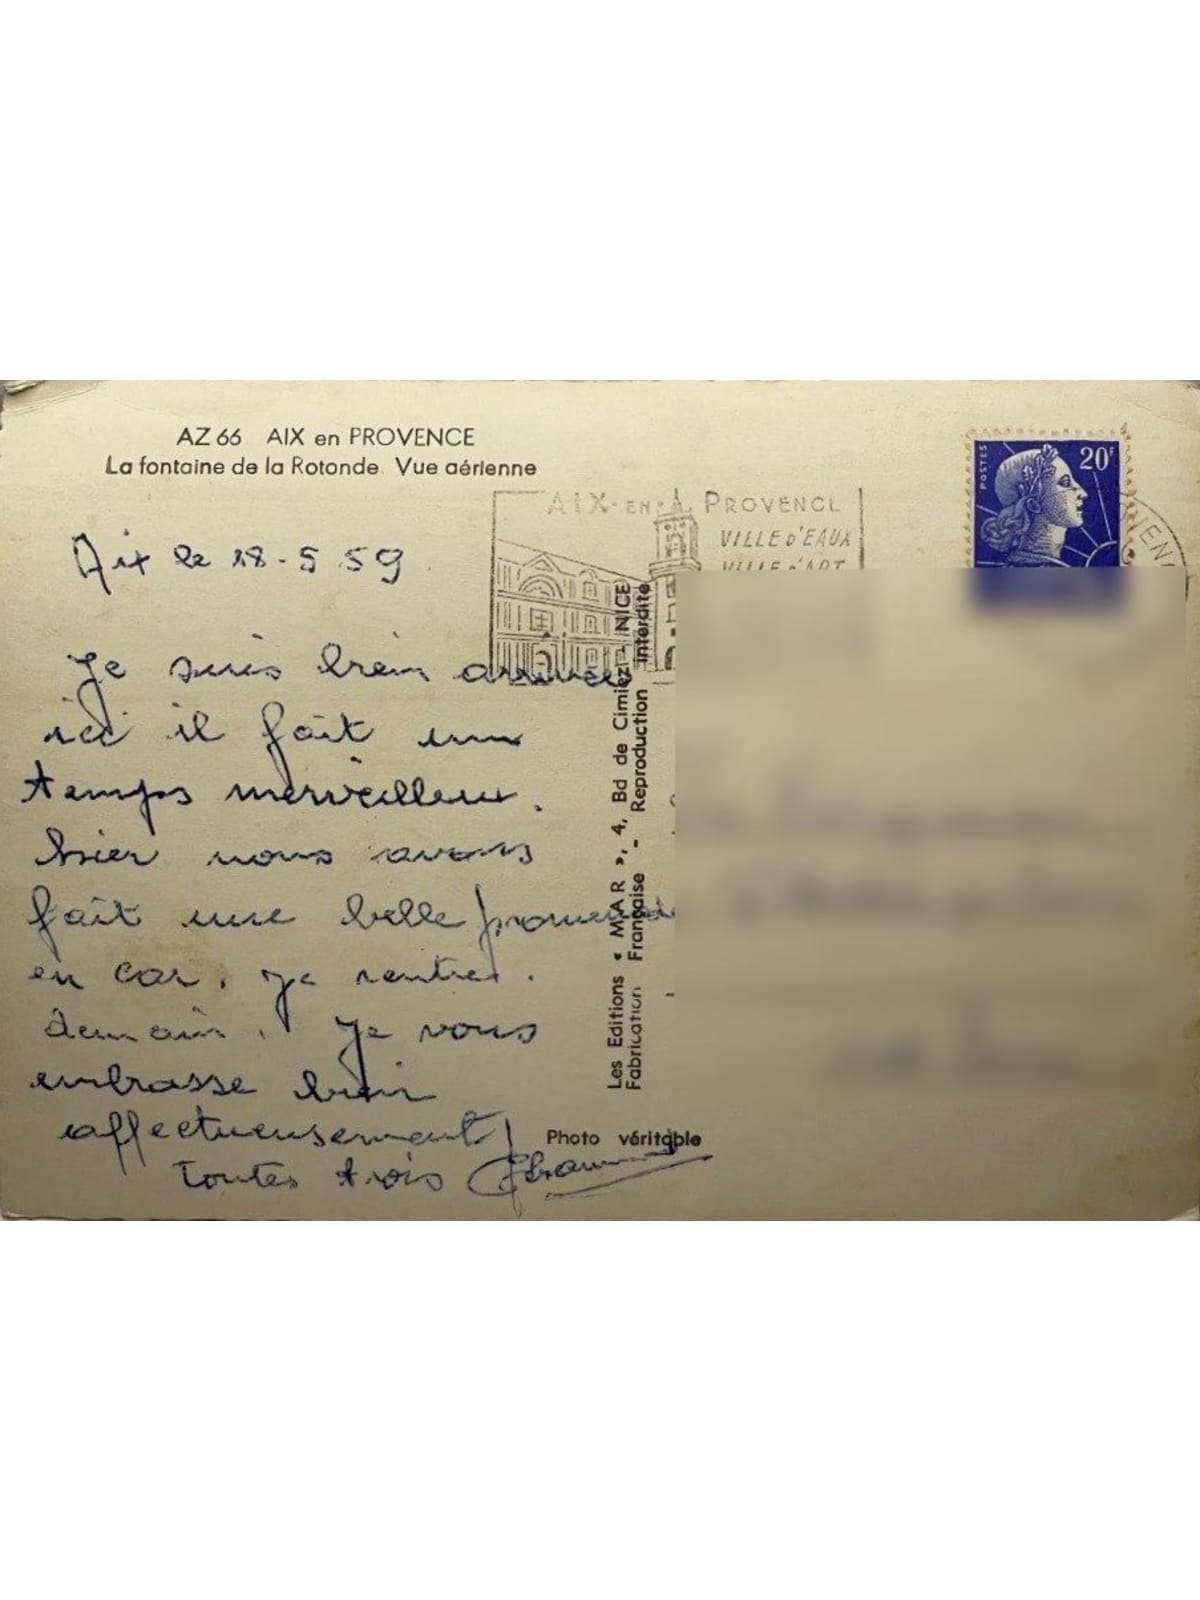 AZ 66 AIX en PROVENCE
La fontaine de la Rotonde. Vue aérienne
AIX-EN-PROVENCE
VILLE D'EAUX
VILLE D'ART
POSTES
20F
Aix le 18-5 59
Je suis bien arrivée
ici il fait un
temps merveilleux.
hier nous avons
fait une belle promenade
en car. Je rentre.
demain. Je vous
embrasse bien
affectueusement
toutes trois
Les Editions « MAR », 4, Bd de Cimiez - NICE
Fabrication Française - Reproduction interdite
Photo véritable